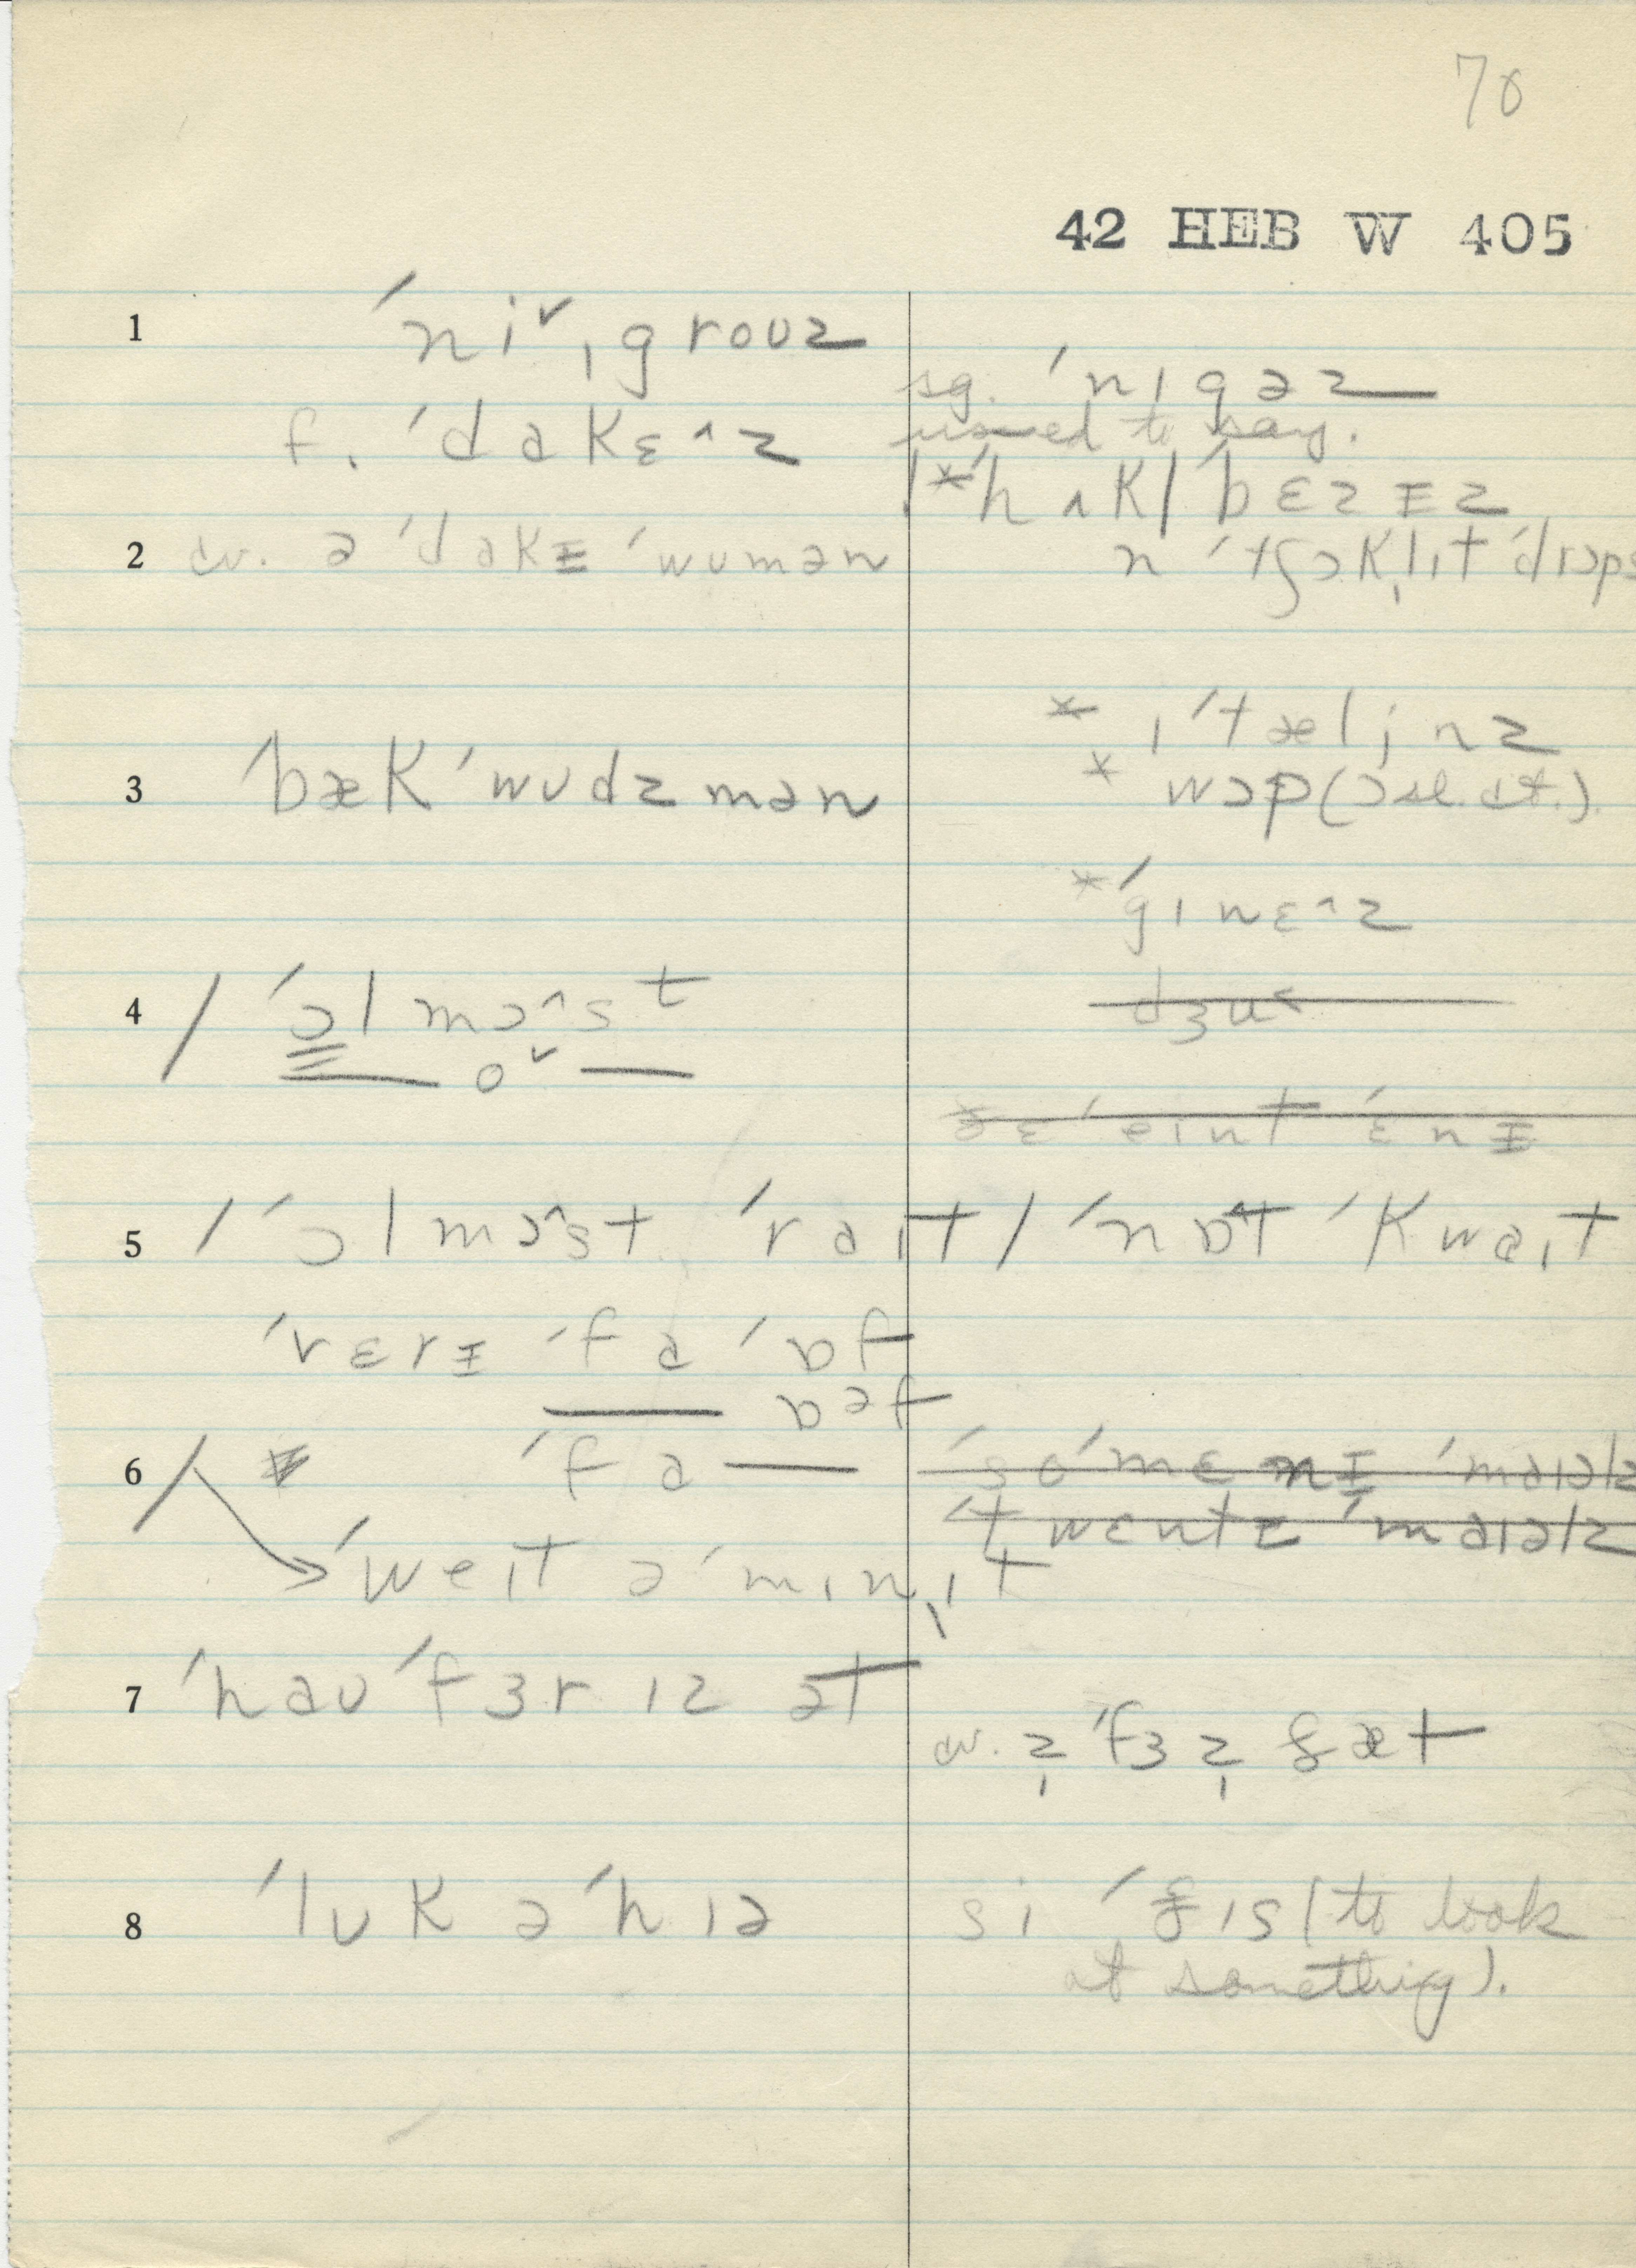 70
42 HEB W 405
1 ˈniˇˌgroʊz
sg. ˈnɪgəz
f. ˈdakɛ^z
used to say.
|*ˈhʌk|ˈbɛzɪz
2 cv. ə ˈdakɪ ˈwʊmən
n ˈtʃɔkˌlɪt ˈdrɔps
* ɪˈtæljnz
3 ˈbækˈwʊdzmən
* wɔp (
*ˈgɪnɛ^z
4 / ˈɔlmɔ^st
oˇ
dʒu
ðɛ ˈeɪnt ˈɛnɪ
5 / ˈɔlmɔ^st ˈraɪt / ˈnɒt ˈkwaɪt
ˈvɛrɪ ˈfa ˈɒf
ɒəf
6 / ˈfa
ˈsoˈmɛnɪ ˈmaɪəlz
ˈtwɛntɪ ˈmaɪəlz
ˈweɪt əˈmɪnˌɪt
7 ˈhaʊ ˈfɜr ɪz ət
cv. z̩ ˈfɜ z̩ ðæt
8 ˈlʊk əˈhɪə
si ˈðɪs (to look
at something).